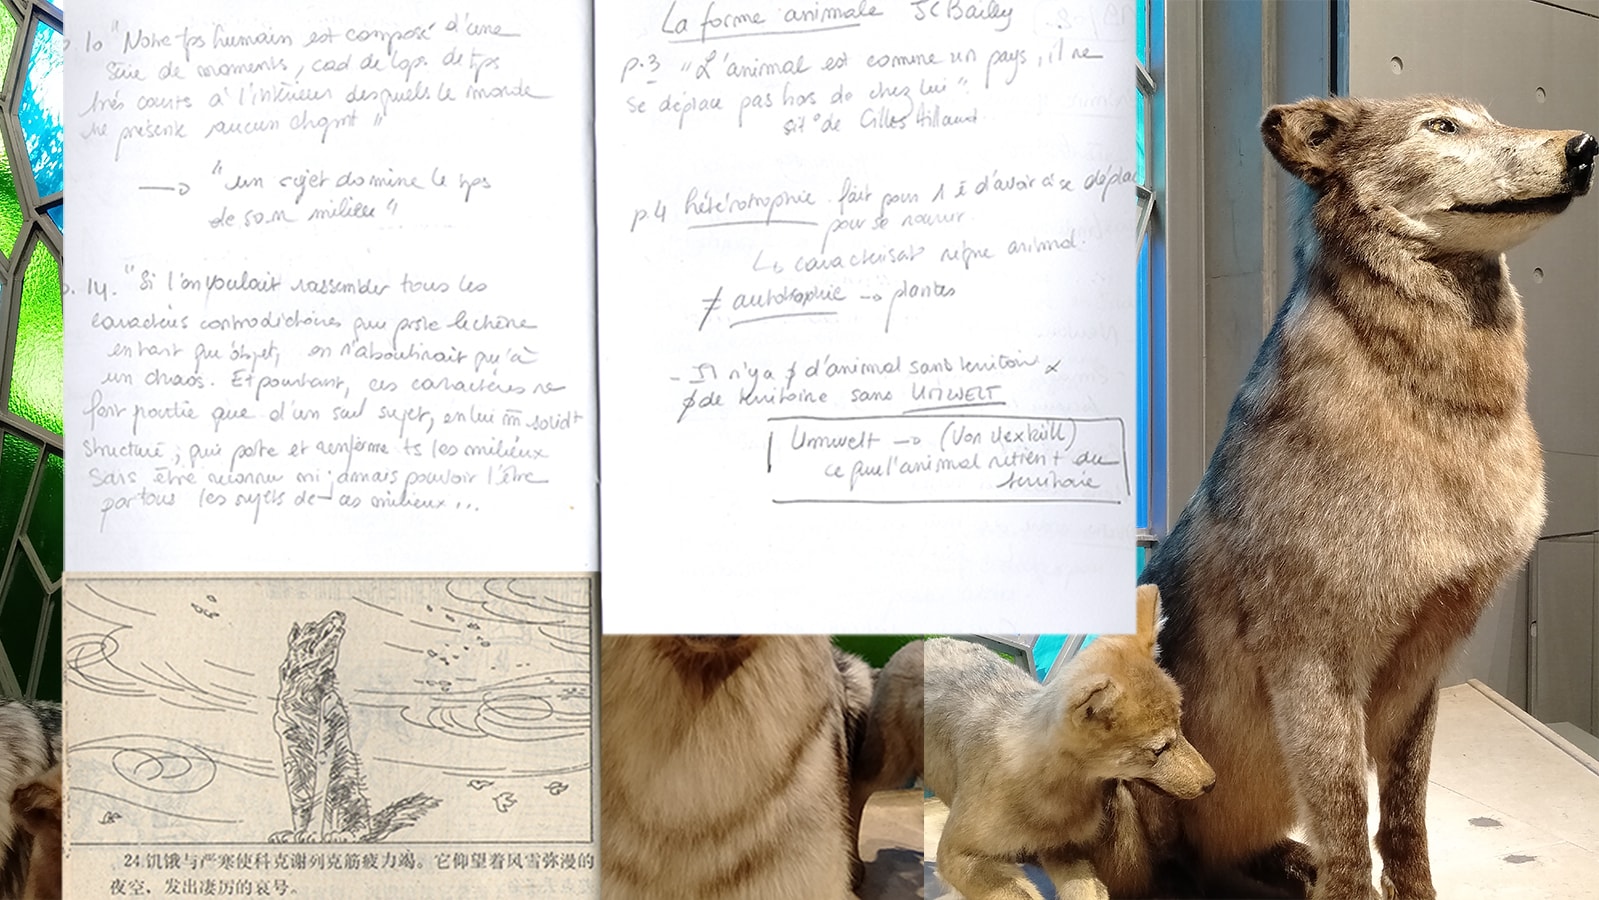 p. 10 "Notre tps humain est composé d'une
série de moments, càd de laps de tps
très courts à l'intérieur desquels le monde
ne présente aucun chgmt"
→ "un sujet domine le tps
de son milieu"
p. 14. "Si l'on voulait rassembler tous les
caractères contradictoires que porte le chêne
en tant qu'objet, on n'aboutirait qu'à
un chaos. Et pourtant, ces caractères ne
font partie que d'un seul sujet, en lui m̄ solidt
structuré, qui porte et renferme ts les milieux
sans être reconnu ni jamais pouvoir l'être
par tous les sujets de ces milieux...
La forme animale JC Bailly
p.3 "L'animal est comme un pays, il ne
se déplace pas hors de chez lui".
de Gilles Aillaud
p.4 hétérotrophie. fait pour 1 d'avoir à se déplac
pour se nourrir.
↳ caractérisat° règne animal.
≠ autotrophie → plantes
- Il n'y a ∮ d'animal sans territoire &
∮ de territoire sans UMWELT
Umwelt → (Von Uexküll)
ce que l'animal retient du
territoire
24 饥饿与严寒使科克谢列克筋疲力竭。它仰望着风雪弥漫的
夜空，发出凄厉的哀号。